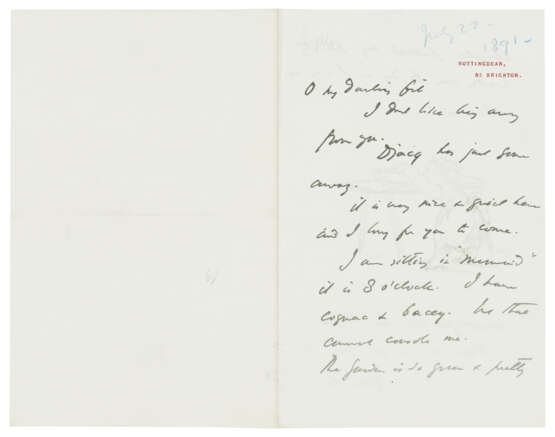 July 22 -
1891 -
ROTTINGDEAN,
Nr BRIGHTON.
O my Darling Girl
I dont like being away
from you.
has just gone
away.
it is very nice & quiet here
and I long for you to come.
I am sitting in "Mermaid"
it is 3 o'clock. I have
cognac & baccy. but these
cannot console me.
The Garden is so green & pretty